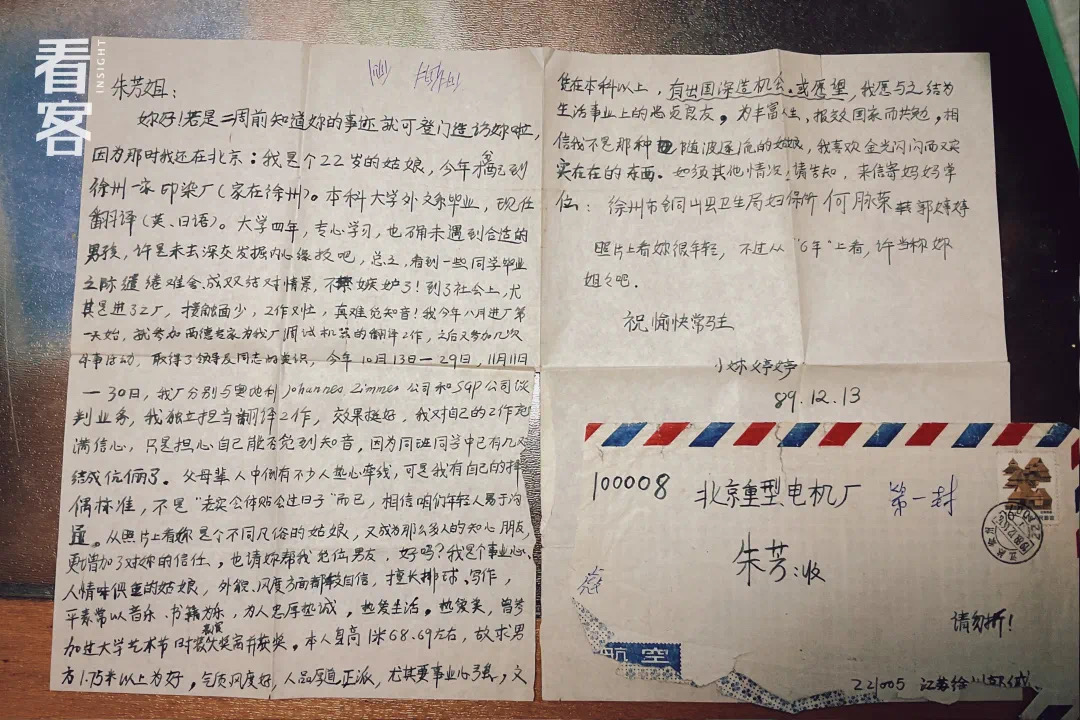 看客
INSIGHT
朱芳姐：
妳好！若是二周前知道妳的事迹就可登门造访妳啦，
因为那时我还在北京：我是个22岁的姑娘，今年分配到
徐州一家印染厂（家在徐州）。本科大学外文系毕业，现任
翻译（英、日语）。大学四年，专心学习，也确未遇到合适的
男孩，许是未去深交发掘内心缘故吧，总之，看到一些同学毕业
之际缱绻难舍、成双结对情景，不嫉妒了！到了社会上，尤
其是进工厂，接触面少，工作又忙，真难觅知音！我今年八月进厂第
一天始，就参加西德专家为我厂调试机器的翻译工作，之后又参加几次
外事活动，取得了领导及同志的赏识，今年10月13日—29日，11月11日
—30日，我厂分别与奥地利Johannes Zimmer公司和SGP公司谈
判业务，我独立担当翻译工作，效果挺好，我对自己的工作充
满信心，只是担心自己能否觅到知音，因为同班同学中已有几对
结成伉俪了。父母辈人中倒有不少人热心牵线，可是我有自己的择
偶标准，不是“老实会体贴会过日子”而已，相信咱们年轻人易于沟
通。从照片上看妳是个不同凡俗的姑娘，又成为那么多人的知心朋友，
更增加了对妳的信任，也请妳帮我觅位男友，好吗？我是个事业心、
人情味俱重的姑娘，外貌、风度方面都较自信，擅长排球、写作，
平素常以音乐、书籍为乐，为人忠厚热诚，热爱生活。热爱美，曾参
加过大学艺术节时装表演大奖赛并获奖。本人身高1米68.69左右，故求男
方1.75米以上为好，气质风度好，人品厚道正派，尤其要事业心强，文
凭在本科以上，有出国深造机会。或愿望，我愿与之结为
生活事业上的忠贞良友，为丰富人生、报效国家而共勉，相
信我不是那种随波逐流的姑娘，我喜欢金光闪闪而又实
实在在的东西。如须其他情况，请告知，来信寄妈妈单
位：徐州市铜山县卫生局妇保所何脉荣转郭婷婷
照片上看妳很年轻，不过从“6年”上看，许当称妳
姐姐吧。
祝愉快常驻
小妹婷婷
89.12.13
100008
北京重型电机厂
第一封
朱芳：收
请勿折！
航空
221005 江苏徐州